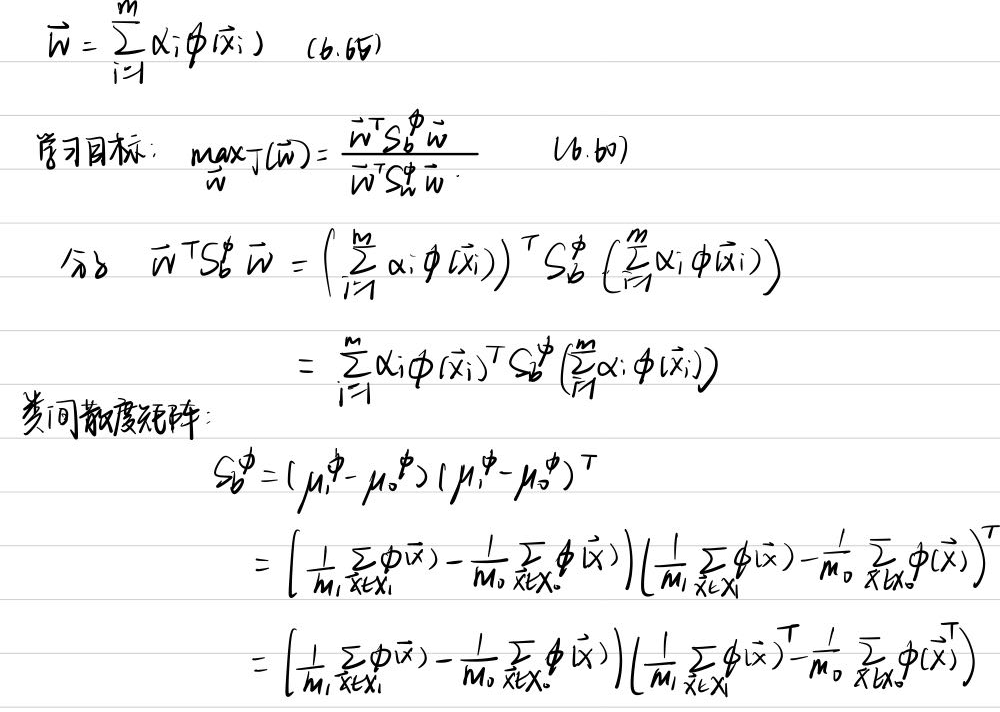 $\vec{w} = \sum_{i=1}^{m} \alpha_i \phi(\vec{x}_i)$ (6.65)
学习目标: $\max_{\vec{w}} J(\vec{w}) = \frac{\vec{w}^T S_b^\phi \vec{w}}{\vec{w}^T S_w^\phi \vec{w}}$. (6.60)
分子 $\vec{w}^T S_b^\phi \vec{w} = \left( \sum_{i=1}^{m} \alpha_i \phi(\vec{x}_i) \right)^T S_b^\phi \left( \sum_{i=1}^{m} \alpha_i \phi(\vec{x}_i) \right)$
$= \sum_{i=1}^{m} \alpha_i \phi(\vec{x}_i)^T S_b^\phi \left( \sum_{i=1}^{m} \alpha_i \phi(\vec{x}_i) \right)$
类间散度矩阵:
$S_b^\phi = (\mu_1^\phi - \mu_0^\phi)(\mu_1^\phi - \mu_0^\phi)^T$
$= \left( \frac{1}{m_1} \sum_{\vec{x} \in X_1} \phi(\vec{x}) - \frac{1}{m_0} \sum_{\vec{x} \in X_0} \phi(\vec{x}) \right) \left( \frac{1}{m_1} \sum_{\vec{x} \in X_1} \phi(\vec{x}) - \frac{1}{m_0} \sum_{\vec{x} \in X_0} \phi(\vec{x}) \right)^T$
$= \left( \frac{1}{m_1} \sum_{\vec{x} \in X_1} \phi(\vec{x}) - \frac{1}{m_0} \sum_{\vec{x} \in X_0} \phi(\vec{x}) \right) \left( \frac{1}{m_1} \sum_{\vec{x} \in X_1} \phi(\vec{x})^T - \frac{1}{m_0} \sum_{\vec{x} \in X_0} \phi(\vec{x})^T \right)$